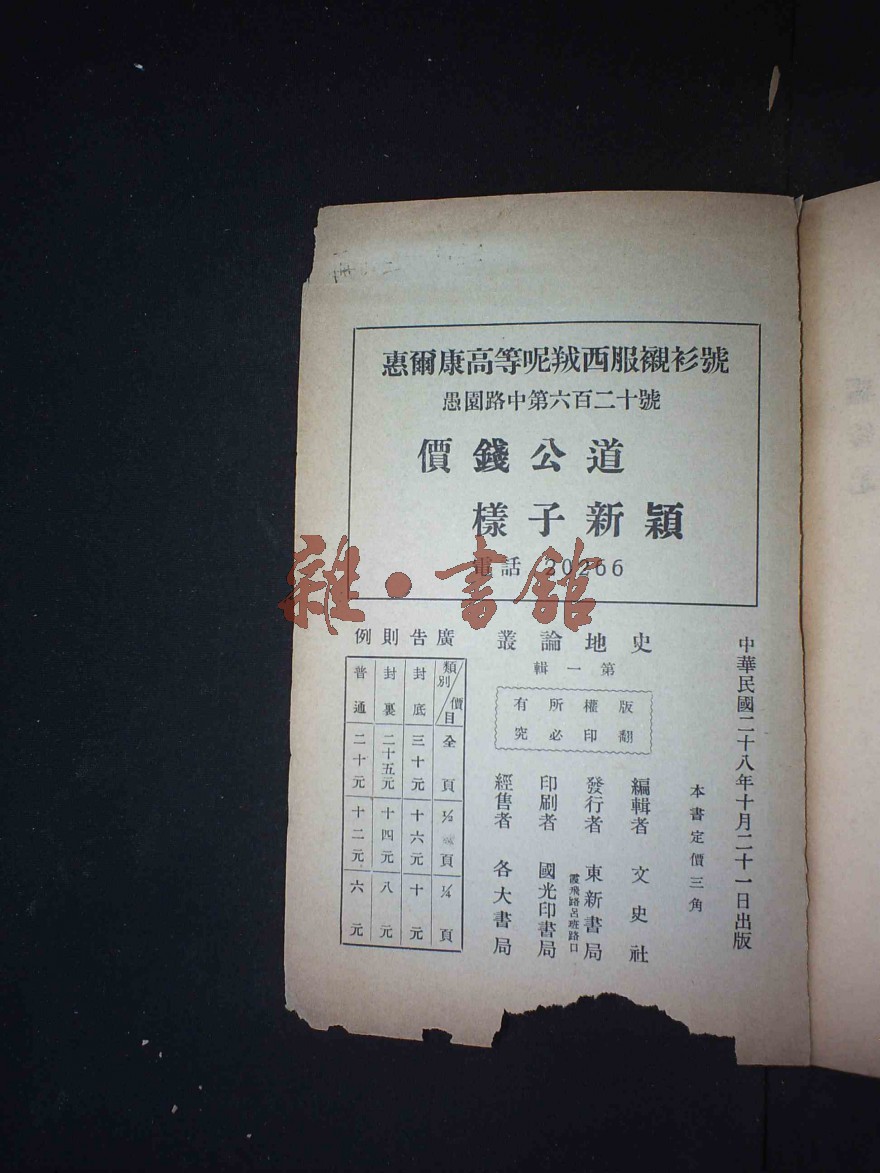 惠爾康高等呢羢西服襯衫號
愚園路中第六百二十號
價錢公道
樣子新穎
電話 20266
雜·書館
中華民國二十八年十月二十一日出版
本書定價三角
史地論叢
第一輯
版權所有
翻印必究
編輯者 文史社
發行者 東新書局
霞飛路呂班路口
印刷者 國光印書局
經售者 各大書局
廣告則例
類別/價目 全頁 1/2頁 1/4頁
封底 三十元 十六元 十元
封裏 二十五元 十四元 八元
普通 二十元 十二元 六元